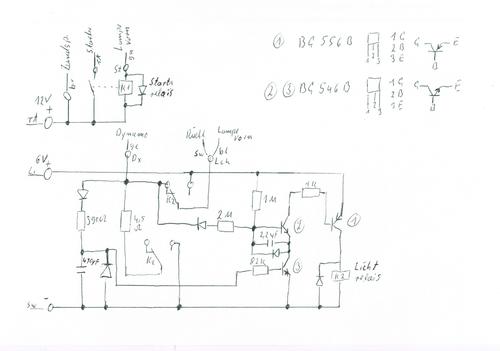 ① BC 556 B
1 C
2 B
3 E
1 2 3
C
E
B
② ③ BC 546 B
1 C
2 B
3 E
1 2 3
C
E
B
Zündsp.
br
Starter
rt
Lampe
vorn
gn
St
K1
Starter
relais
12V
+
rt
Dynamo
ge
Dx
Rückl
sw
Lampe
vorn
bl
Lch
6V
+
K2
390Ω
4,5
Ω
2M
1M
1K
①
②
2,2µF
③
82K
470µF
K1
K2
Licht
relais
sw
-